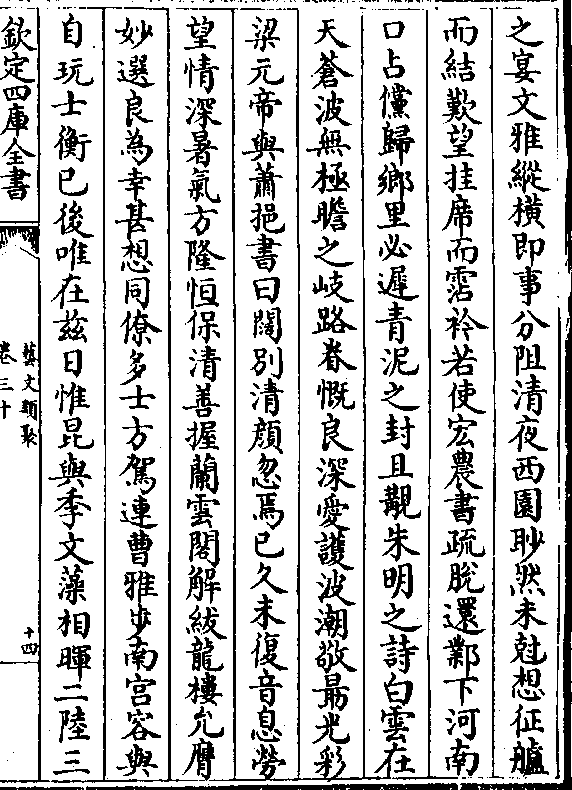 之宴文雅縱橫即事分阻清夜西園眇然未尅想征艫
而結歎望挂席而霑衿若使宏農書疏脫還鄴下河南
口占儻歸鄉里必遲青泥之封且覯朱明之詩白雲在
天蒼波無極瞻之岐路眷慨良深愛護波潮敬勗光彩
梁元帝與蕭挹書曰闊別清顔忽焉已久未復音息勞
望情深暑氣方隆恒保清善握蘭雲閣解紱龍樓允膺
妙選良為幸甚想同僚多士方駕連曹雅步南宫容與
自玩士衡已後唯在兹日惟昆與季文藻相暉二陸三
欽定四庫全書
藝文類聚
卷三十
十四